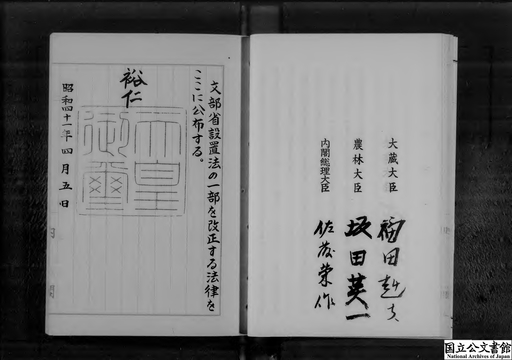 大蔵大臣
福田赳夫
農林大臣
坂田英一
内閣総理大臣
佐藤榮作
文部省設置法の一部を改正する法律を
ここに公布する。
裕仁
天皇
御璽
昭和四十一年四月五日
国立公文書館
National Archives of Japan